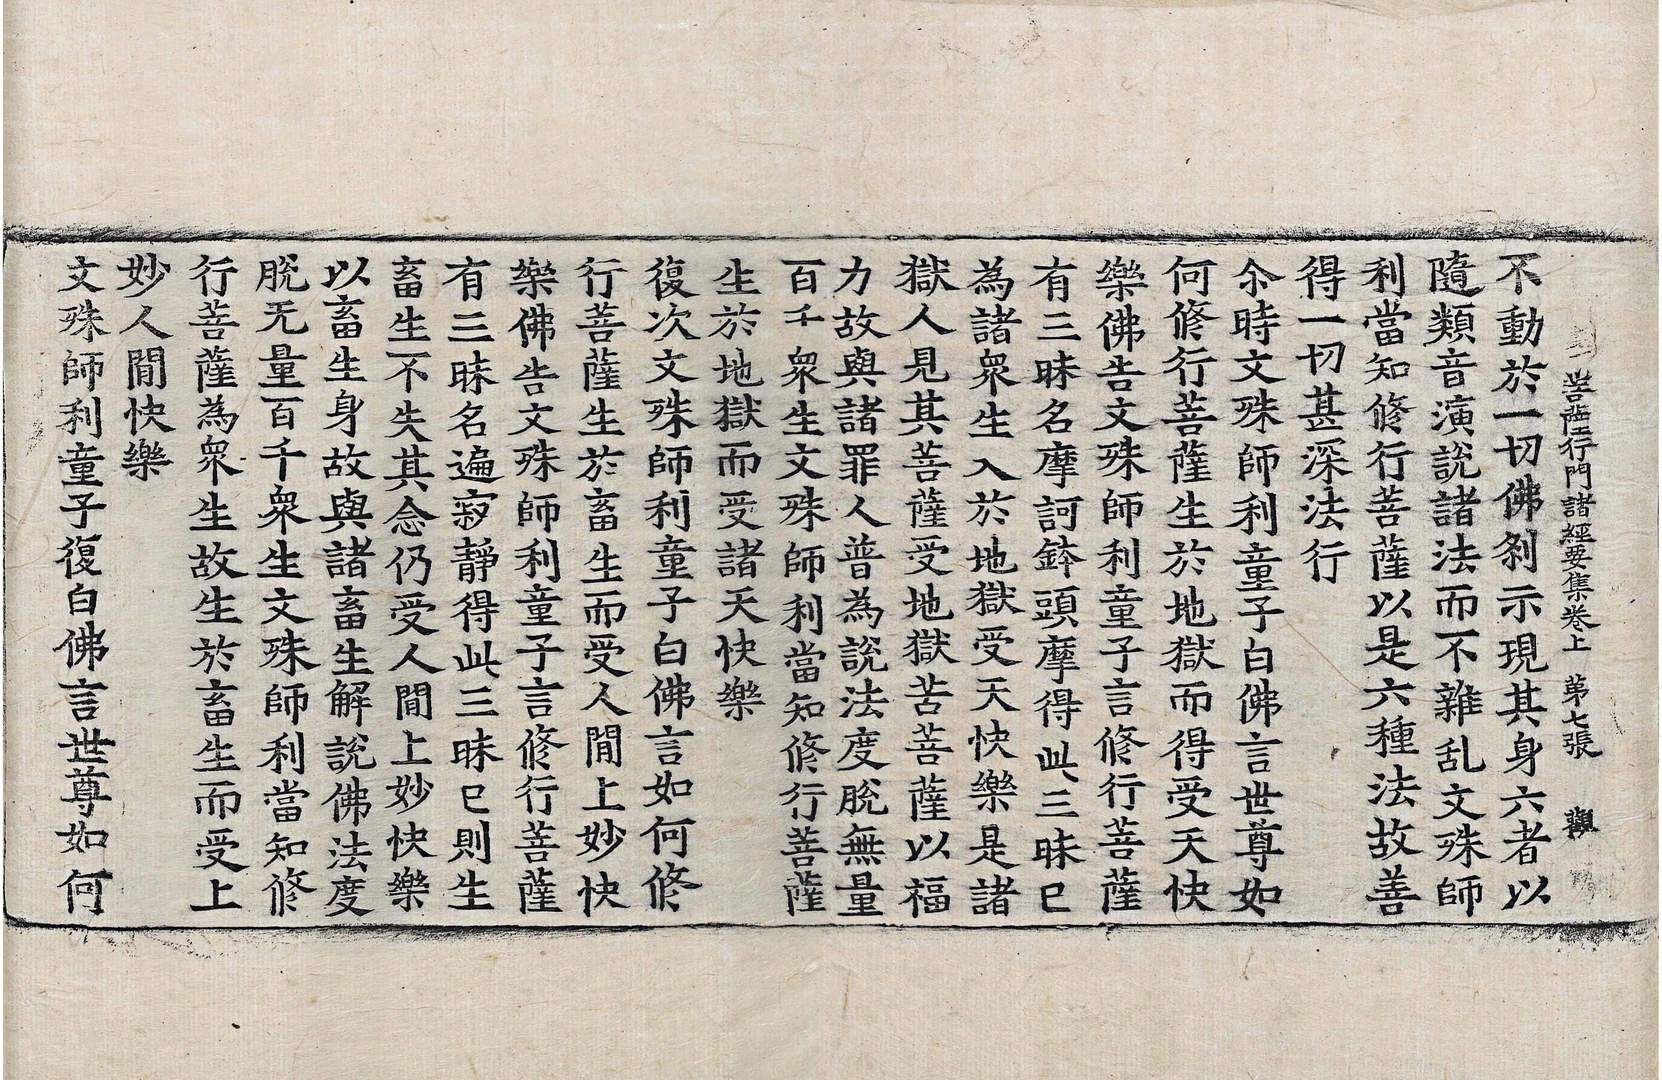 菩薩行門諸經要集卷上 第七張 觀
不動於一切佛刹示現其身六者以
隨類音演說諸法而不雜乱文殊師
利當知修行菩薩以是六種法故善
得一切甚深法行
尒時文殊師利童子白佛言世尊如
何修行菩薩生於地獄而得受天快
樂佛告文殊師利童子言修行菩薩
有三昧名摩訶鉢頭摩得此三昧已
為諸衆生入於地獄受天快樂是諸
獄人見其菩薩受地獄苦菩薩以福
力故與諸罪人普為說法度脫無量
百千衆生文殊師利當知修行菩薩
生於地獄而受諸天快樂
復次文殊師利童子白佛言如何修
行菩薩生於畜生而受人間上妙快
樂佛告文殊師利童子言修行菩薩
有三昧名遍寂靜得此三昧已則生
畜生不失其念仍受人間上妙快樂
以畜生身故與諸畜生解說佛法度
脫无量百千衆生文殊師利當知修
行菩薩為衆生故生於畜生而受上
妙人間快樂
文殊師利童子復白佛言世尊如何